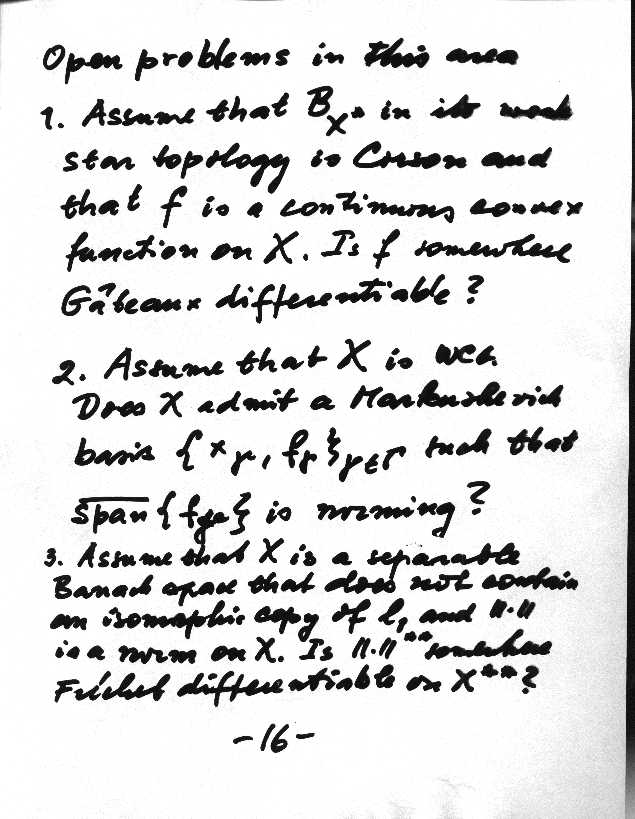 Open problems in this area
1. Assume that B_X* in its weak
star topology is Corson and
that f is a continuous convex
function on X. Is f somewhere
Gâteaux differentiable?
2. Assume that X is WCG.
Does X admit a Markushevich
basis {x_γ, f_γ}_γ∈Γ such that
span{f_γ} is norming?
3. Assume that X is a separable
Banach space that does not contain
an isomorphic copy of l_1 and ||·||
is a norm on X. Is ||·||** somewhere
Fréchet differentiable on X**?
-16-